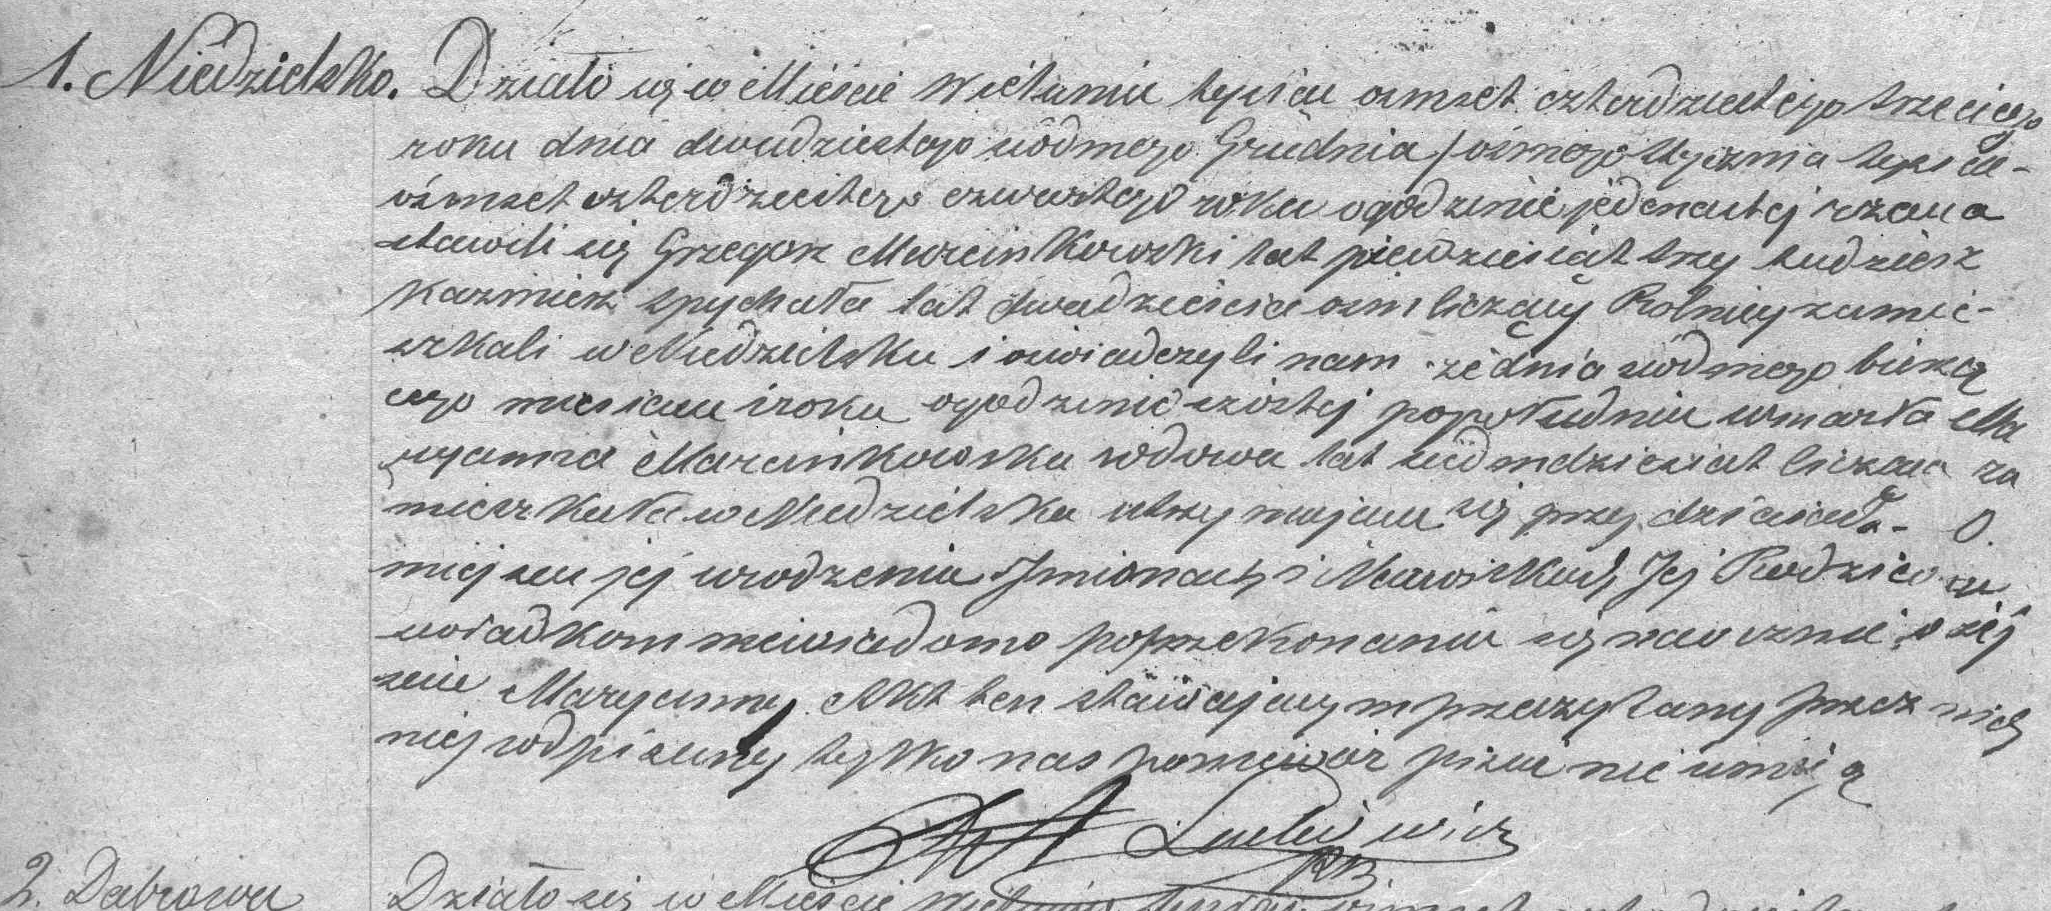 1. Niedzielsko. Działo się w Mieście Wieluniu tysiąc osmset czterdziestego trzeciego
roku dnia dwudziestego siódmego Grudnia / osmego Stycznia tysiąc-
ośmset czterdziestego czwartego roku o godzinie jedenastej rzana
stawili się Grzegorz Marcinkowski lat piedziesiat trzy tudziesz
Kazmierz Spychała lat dwadzieścia osm liczący Rolnicy zamie-
szkali w Niedzielsku i oswiadczyli nam że dnia siódmego bieżą
cego miesiąca i roku o godzinie szóstej popołudniu umarła Ma
ryanna Marcinkowska wdowa lat siedmdziesiat licząca za
mieszkała w Niedzielsku utrzymająca się przy dzieciach - O
miejscu jej urodzenia Imionach i Nazwiskach Jej Rodziców
swiadkom niewiadomo po przekonaniu się naocznie o zej
sciu Maryanny Akt ten stawającym przeczytany przez nich
niepodpisany tylko nas poniewąż pisać nie umieją
2. Dabrowa Działo się w Mieście Wieluniu tysiąc osmset